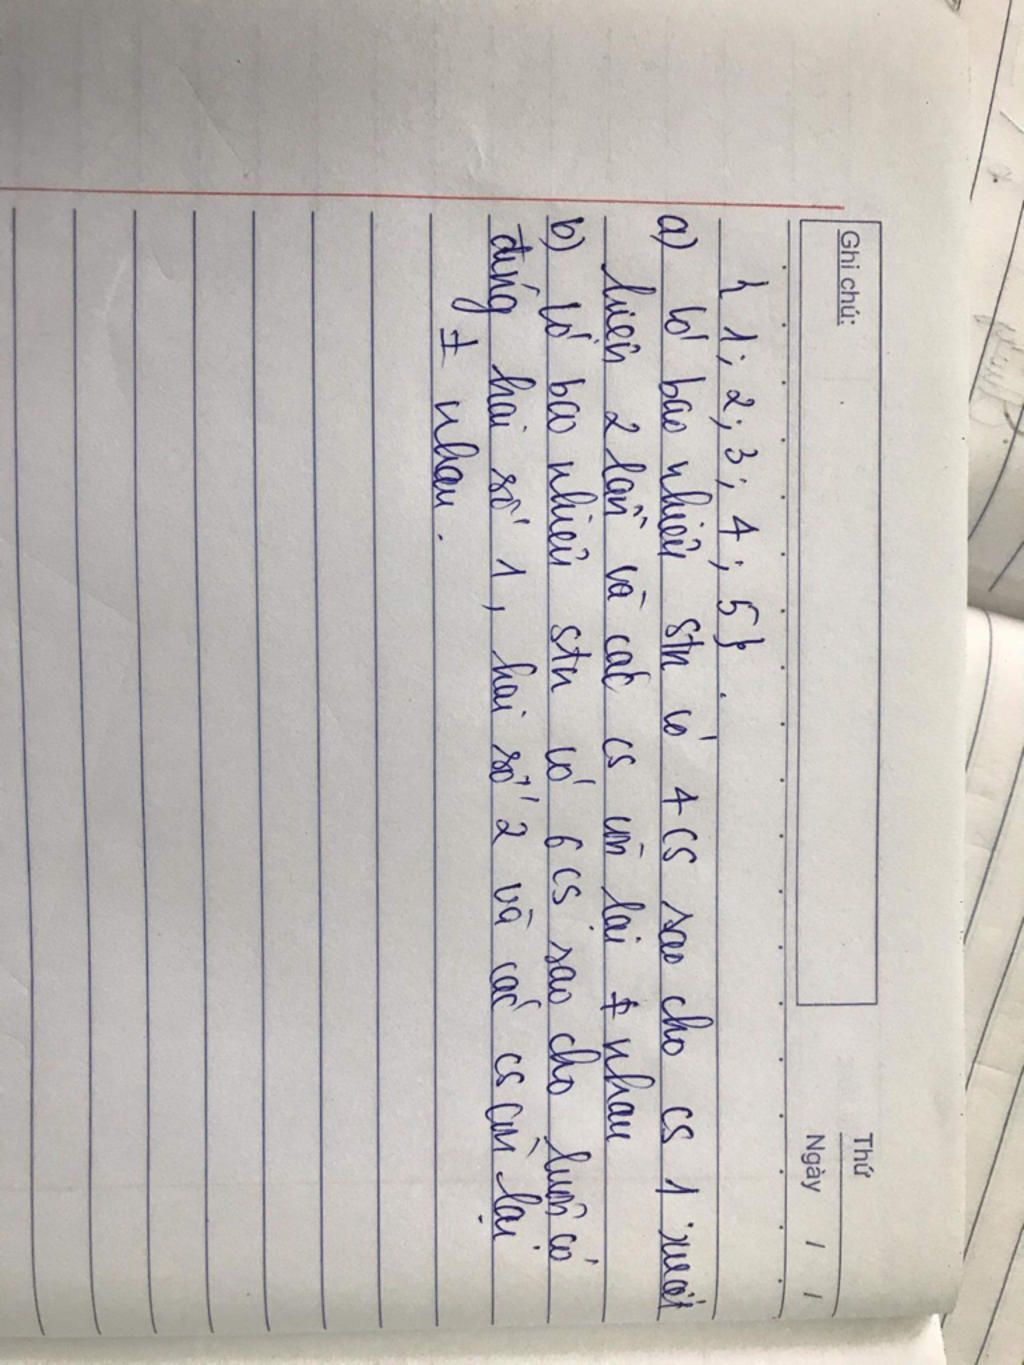 Ghi chú:
Thứ
Ngày / /
{ 1; 2; 3; 4; 5}.
a) Có bao nhiêu stn có 4 cs sao cho cs 1 xuất
hiện 2 lần và các cs còn lại ≠ nhau
b) Có bao nhiêu stn có 6 cs sao cho luôn có
đúng hai số 1, hai số 2 và các cs còn lại
≠ nhau.